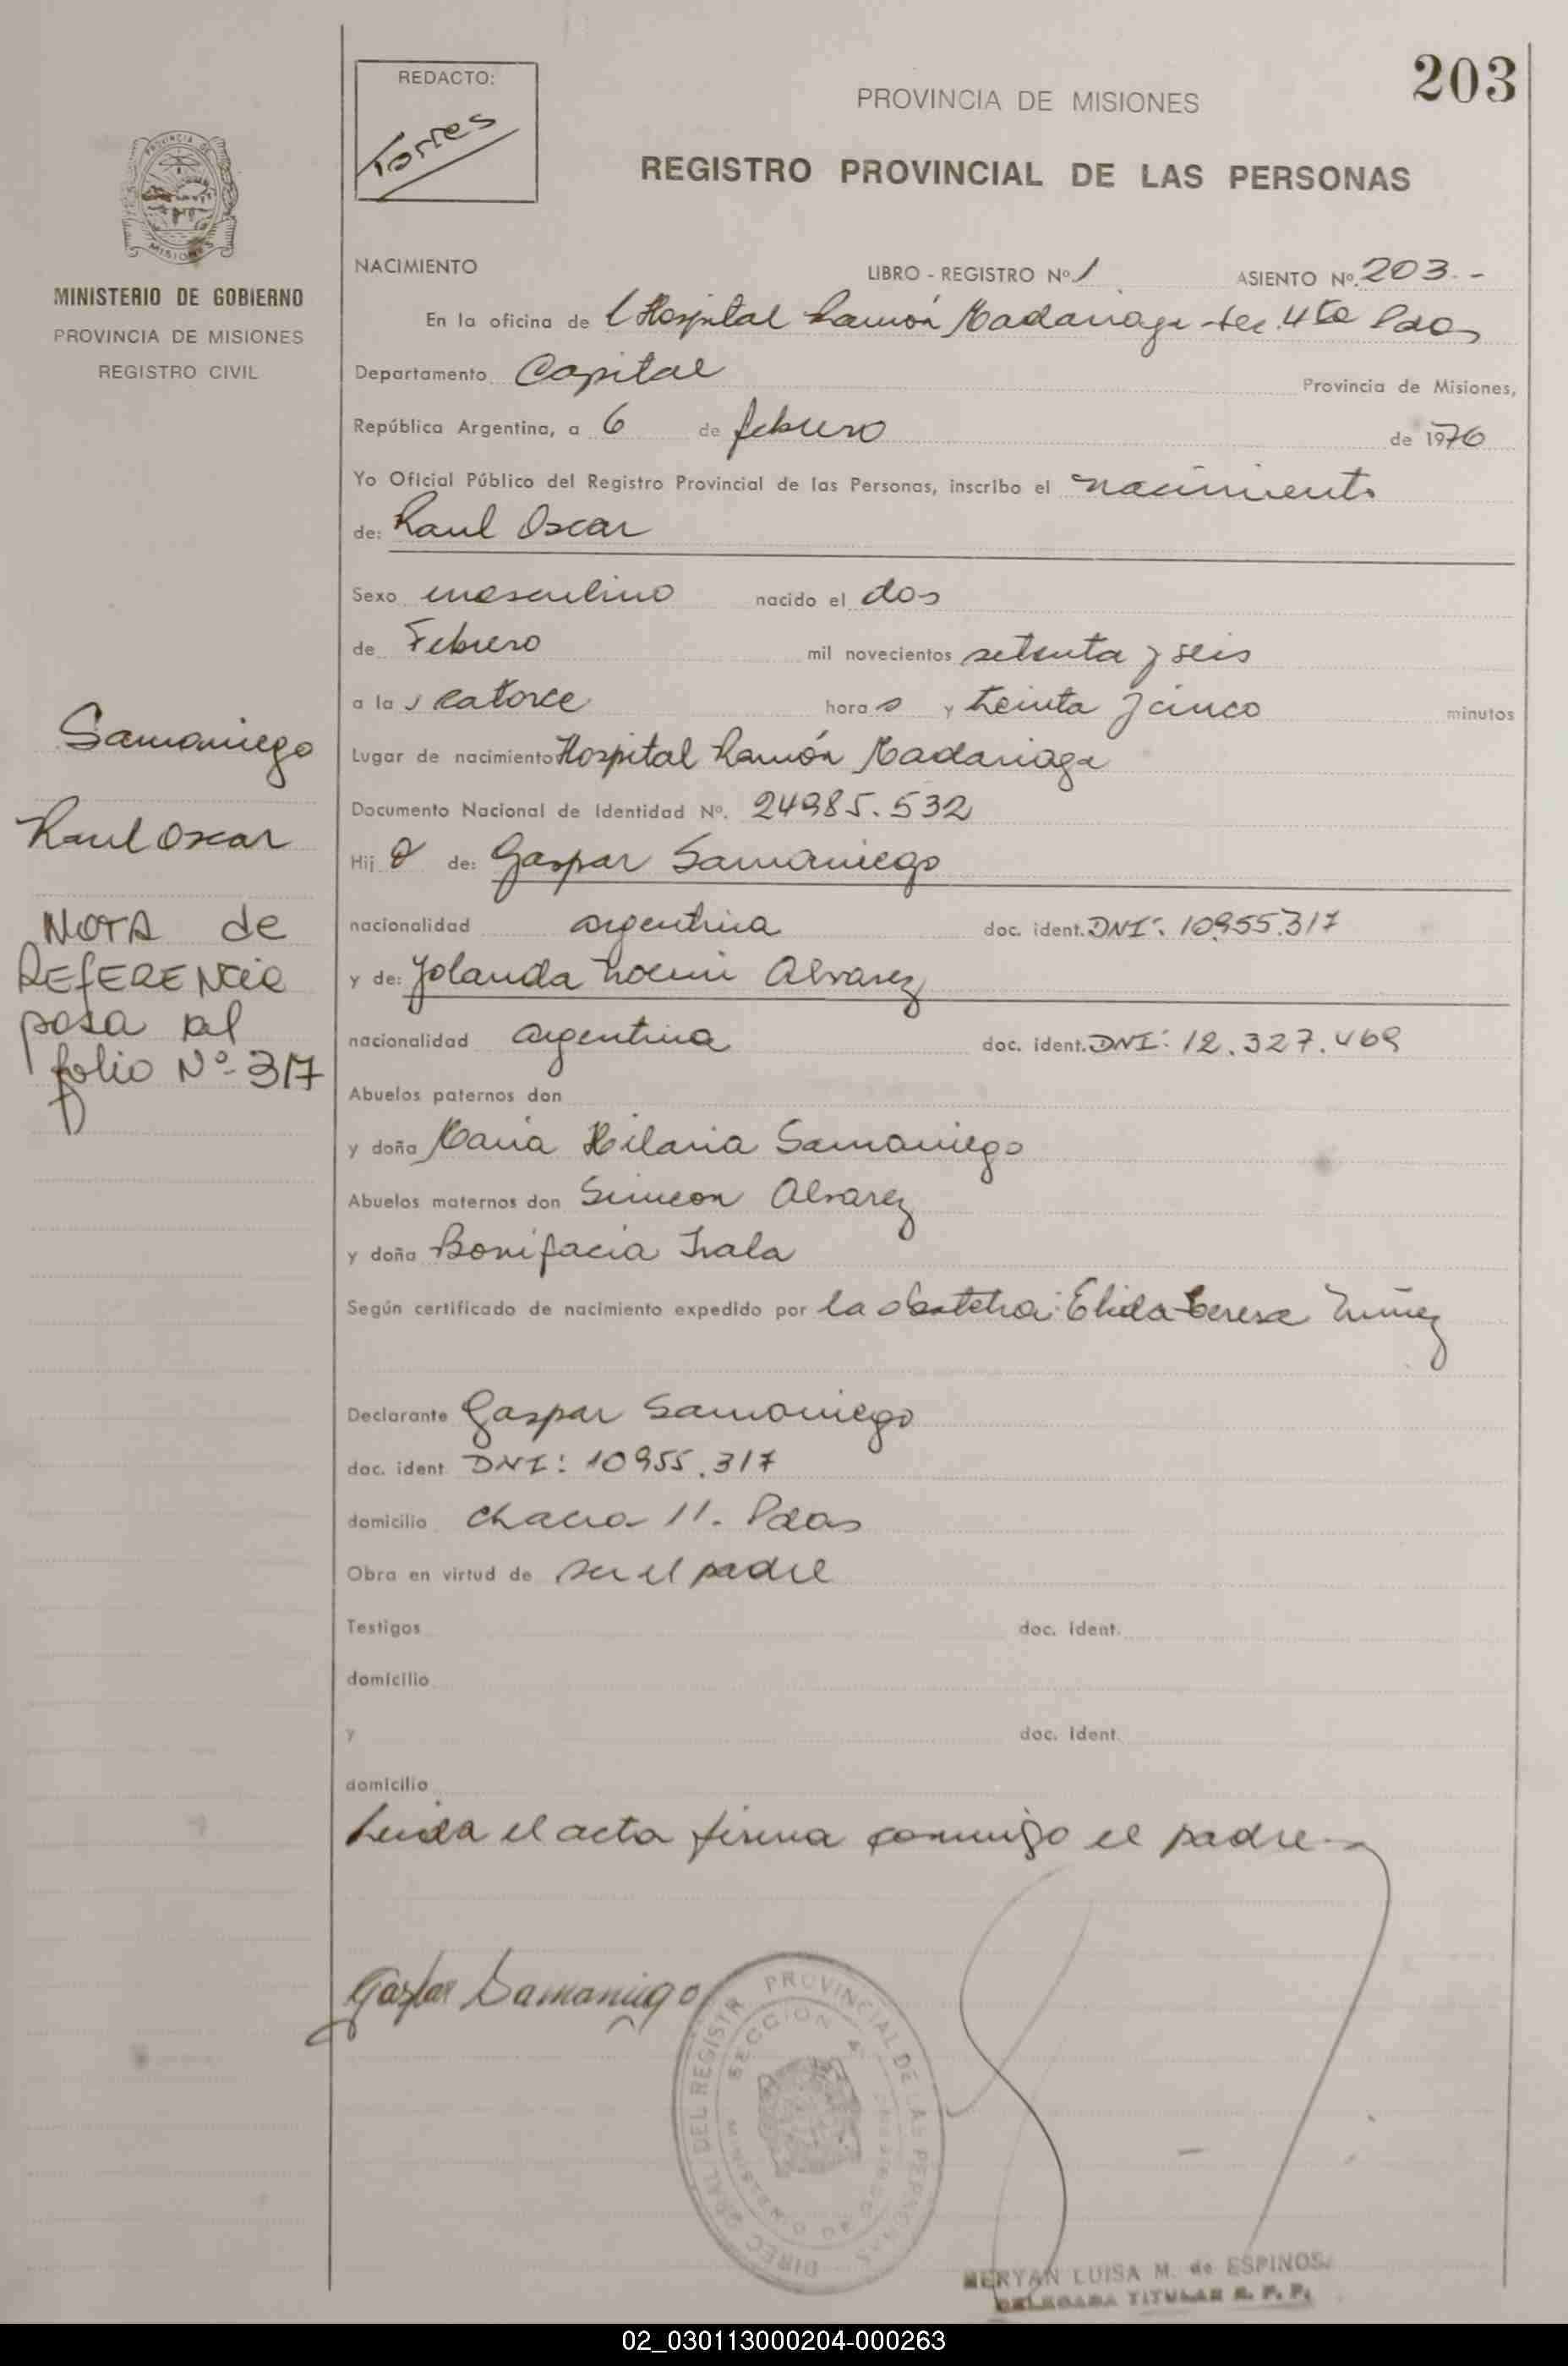 203
REDACTO:
Torres
PROVINCIA DE MISIONES
REGISTRO PROVINCIAL DE LAS PERSONAS
PROVINCIA DE
MISIONES
MINISTERIO DE GOBIERNO
PROVINCIA DE MISIONES
REGISTRO CIVIL
NACIMIENTO LIBRO - REGISTRO Nº 1 ASIENTO Nº 203.-
En la oficina de l Hospital Ramón Madariaga - Sec. 4ta Pdas
Departamento Capital Provincia de Misiones,
República Argentina, a 6 de febrero de 1976
Yo Oficial Público del Registro Provincial de las Personas, inscribo el nacimiento
de: Raul Oscar
Sexo masculino nacido el dos
de Febrero mil novecientos setenta y seis
a la s catorce hora s y treinta y cinco minutos
Lugar de nacimiento Hospital Ramón Madariaga
Documento Nacional de Identidad Nº. 24985.532
Hij o de: Gaspar Samaniego
nacionalidad argentina doc. ident. DNI: 10.955.317
y de: Yolanda Noemi Alvarez
nacionalidad argentina doc. ident. DNI: 12.327.469
Abuelos paternos don
y doña Maria Hilaria Samaniego
Abuelos maternos don Simeon Alvarez
y doña Bonifacia Irala
Según certificado de nacimiento expedido por la obstetra: Elida Teresa Nuñez
Declarante Gaspar Samaniego
doc. ident DNI: 10955.317
domicilio chacra 11. Pdas
Obra en virtud de ser el padre
Testigos doc. ident.
domicilio
y doc. ident.
domicilio
Leida el acta firma conmigo el padre.-
Samaniego
Raul Oscar
NOTA de
REFERENCia
pasa al
folio Nº 317
Gaspar Samaniego
DIREC. GRAL. DEL REGISTR PROVINCIAL DE LAS PERSONAS
SECCION 4
MINISTERIO DE GOBIERNO
MERYAN LUISA M. de ESPINOS
DELEGADA TITULAR R. P. P.
02_030113000204-000263